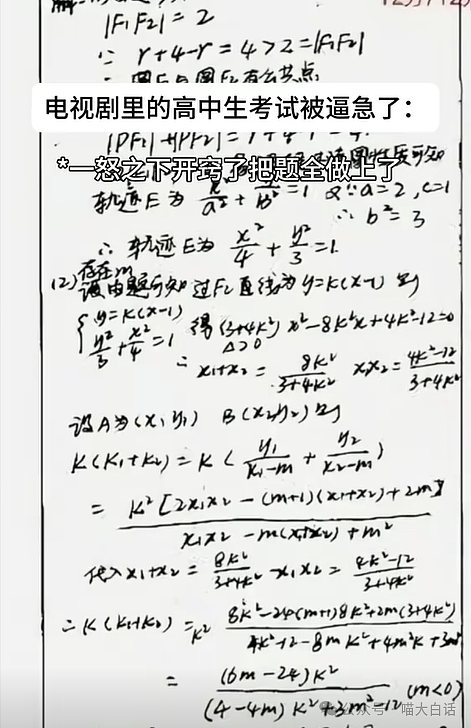 |F₁F₂| = 2
∵ r+4-r = 4 > 2 = |F₁F₂|
电视剧里的高中生考试被逼急了：
*一怒之下开窍了把题全做上了
轨迹E为 x²/a² + y²/b² = 1 a=2, c=1
∴ b² = 3
∴ 轨迹E为 x²/4 + y²/3 = 1
(2) 存在m
设由题可知 过F₂直线为 y=k(x-1) 则
{ y=k(x-1)
y²/3 + x²/4 = 1 得 (3+4k²)x²-8k²x+4k²-12=0
△>0
∴ x₁+x₂ = 8k²/(3+4k²) x₁x₂ = (4k²-12)/(3+4k²)
设A为(x₁y₁) B(x₂y₂) 则
k(k₁+k₂) = k( y₁/(x₁-m) + y₂/(x₂-m) )
= k²[2x₁x₂-(m+1)(x₁+x₂)+2m] / (x₁x₂-m(x₁+x₂)+m²)
代入 x₁+x₂ = 8k²/(3+4k²) x₁x₂ = (4k²-12)/(3+4k²)
∴ k(k₁+k₂) = k²
= (6m-24)k² / ((4-4m)k²+3m²-12 (m<0)
公众号·喵大白话